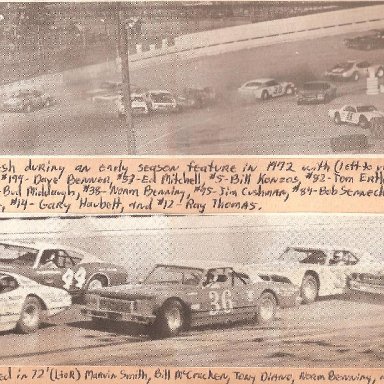 sh during an early season feature in 1972 with (left to
#199- Dave Benner, #57-Ed Mitchell, #5-Bill Konzos, #92- Tom
-Bud Middaugh, #38-Norm Benning, #95-Jim Cushman, #84-Bob
#14- Gary Haubolt, and #12 Ray Thomas.
44
36
ed in 72' (L to R) Marvin Smith, Bill McCracken, Tony Diano, Norm Benning,